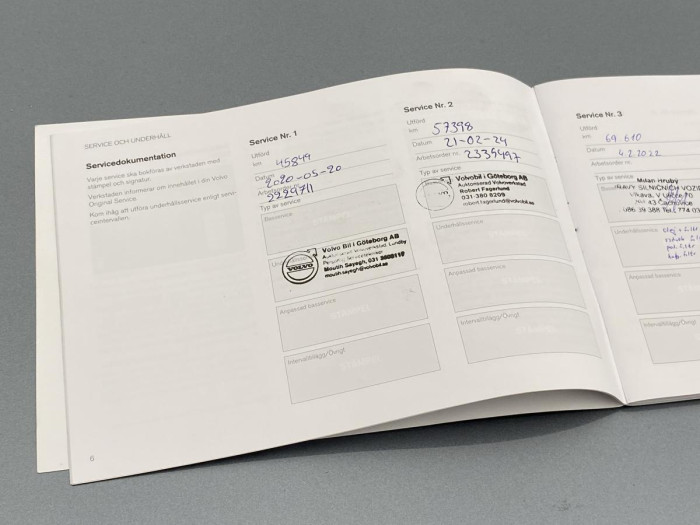 SERVICE OCH UNDERHÅLL
Servicedokumentation
Varje service ska bokföras av verkstaden med
stämpel och signatur.
Verkstaden informerar om innehållet i din Volvo
Original Service.
Kom ihåg att utföra underhållsservice enligt servi-
ceintervallen.
6
Service Nr. 1
Utförd
km 45849
Datum 2020-05-20
Arbetsorder nr. 2224711
Typ av service
Basservice
Volvo Bil i Göteborg AB
Lundby
Mouth Sayegh, 031
mouth.sayegh@volvobil.se
VOLVO
Anpassad basservice
Intervalltillägg/Övrigt
Service Nr. 2
Utförd
km 57398
Datum 21-02-24
Arbetsorder nr. 2335497
Typ av service
Volvobil i Göteborg AB
Auktoriserad Volvoverkstad
Robert Fagerlund
031-380 8209
robert.fagerlund@volvobil.se
Underhållsservice
Anpassad basservice
Intervalltillägg/Övrigt
Service Nr. 3
Utförd
km 69 610
Datum 4.2.2022
Arbetsorder nr.
Typ av service
Milan Hrubý
SILNIČNÍCH VOZI
43 Čachovice
Underhållsservice
Anpassad basservice
Intervalltillägg/Övrigt